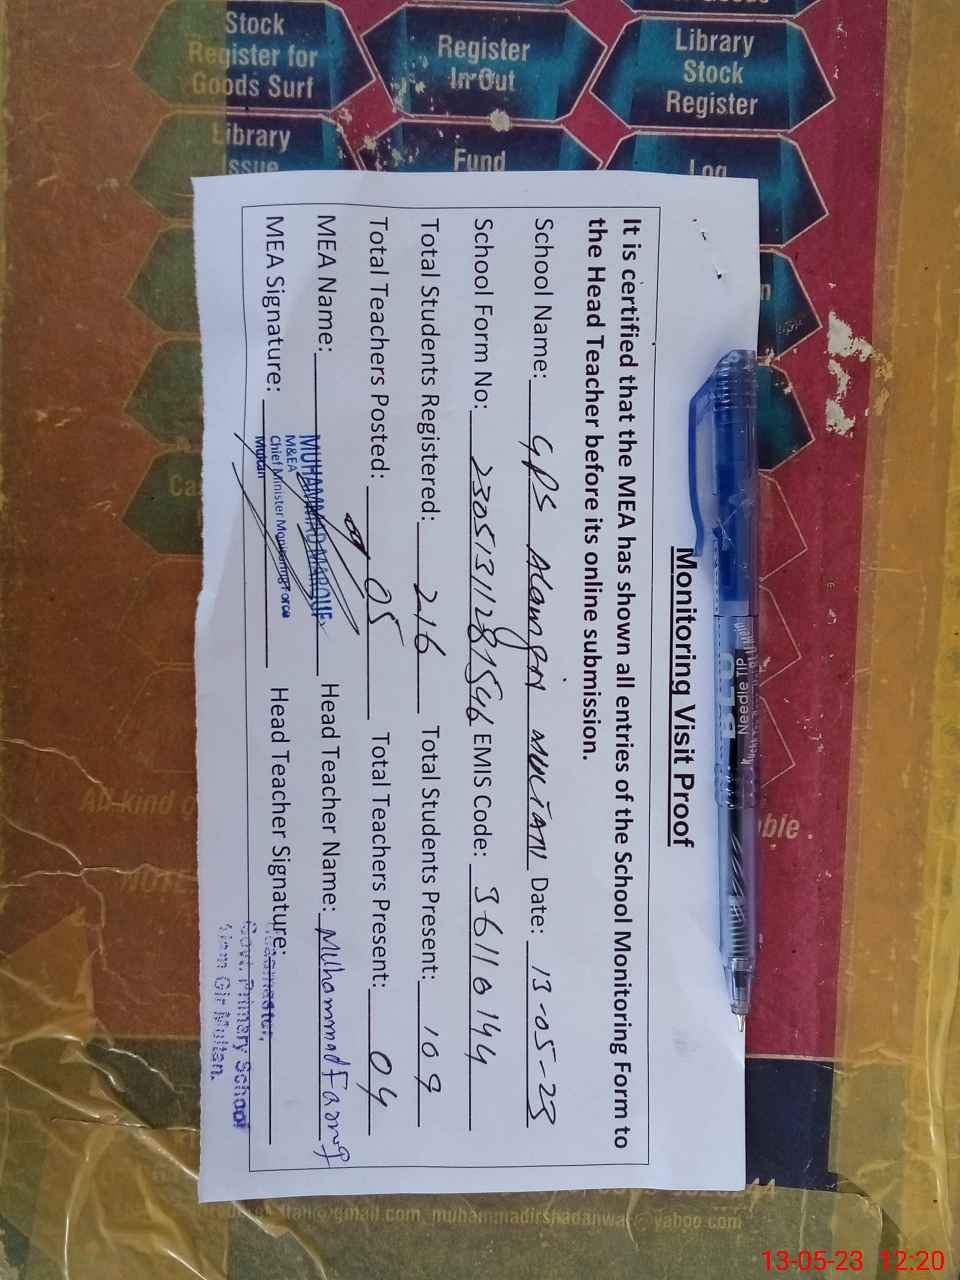 Stock
Register for
Goods Surf
Register
In Out
Library
Stock
Register
Library
Issue
Fund
Log
Monitoring Visit Proof
It is certified that the MEA has shown all entries of the School Monitoring Form to
the Head Teacher before its online submission.
School Name: GPS Alamgir MULTAN Date: 13-05-23
School Form No: EMIS Code: 36110144
Total Students Registered: 216 Total Students Present: 109
Total Teachers Posted: 05 Total Teachers Present: 04
MEA Name: MUHAMMAD Head Teacher Name: Muhammad Farooq
M&EA
Chief Minister Monitoring Force
Multan
MEA Signature: Head Teacher Signature:
Headmaster,
Govt. Primary School
Alam Gir Multan.
Needle Tip
able.
@gmail.com, muhammadirshadanwar@yahoo.com
13-05-23 12:20